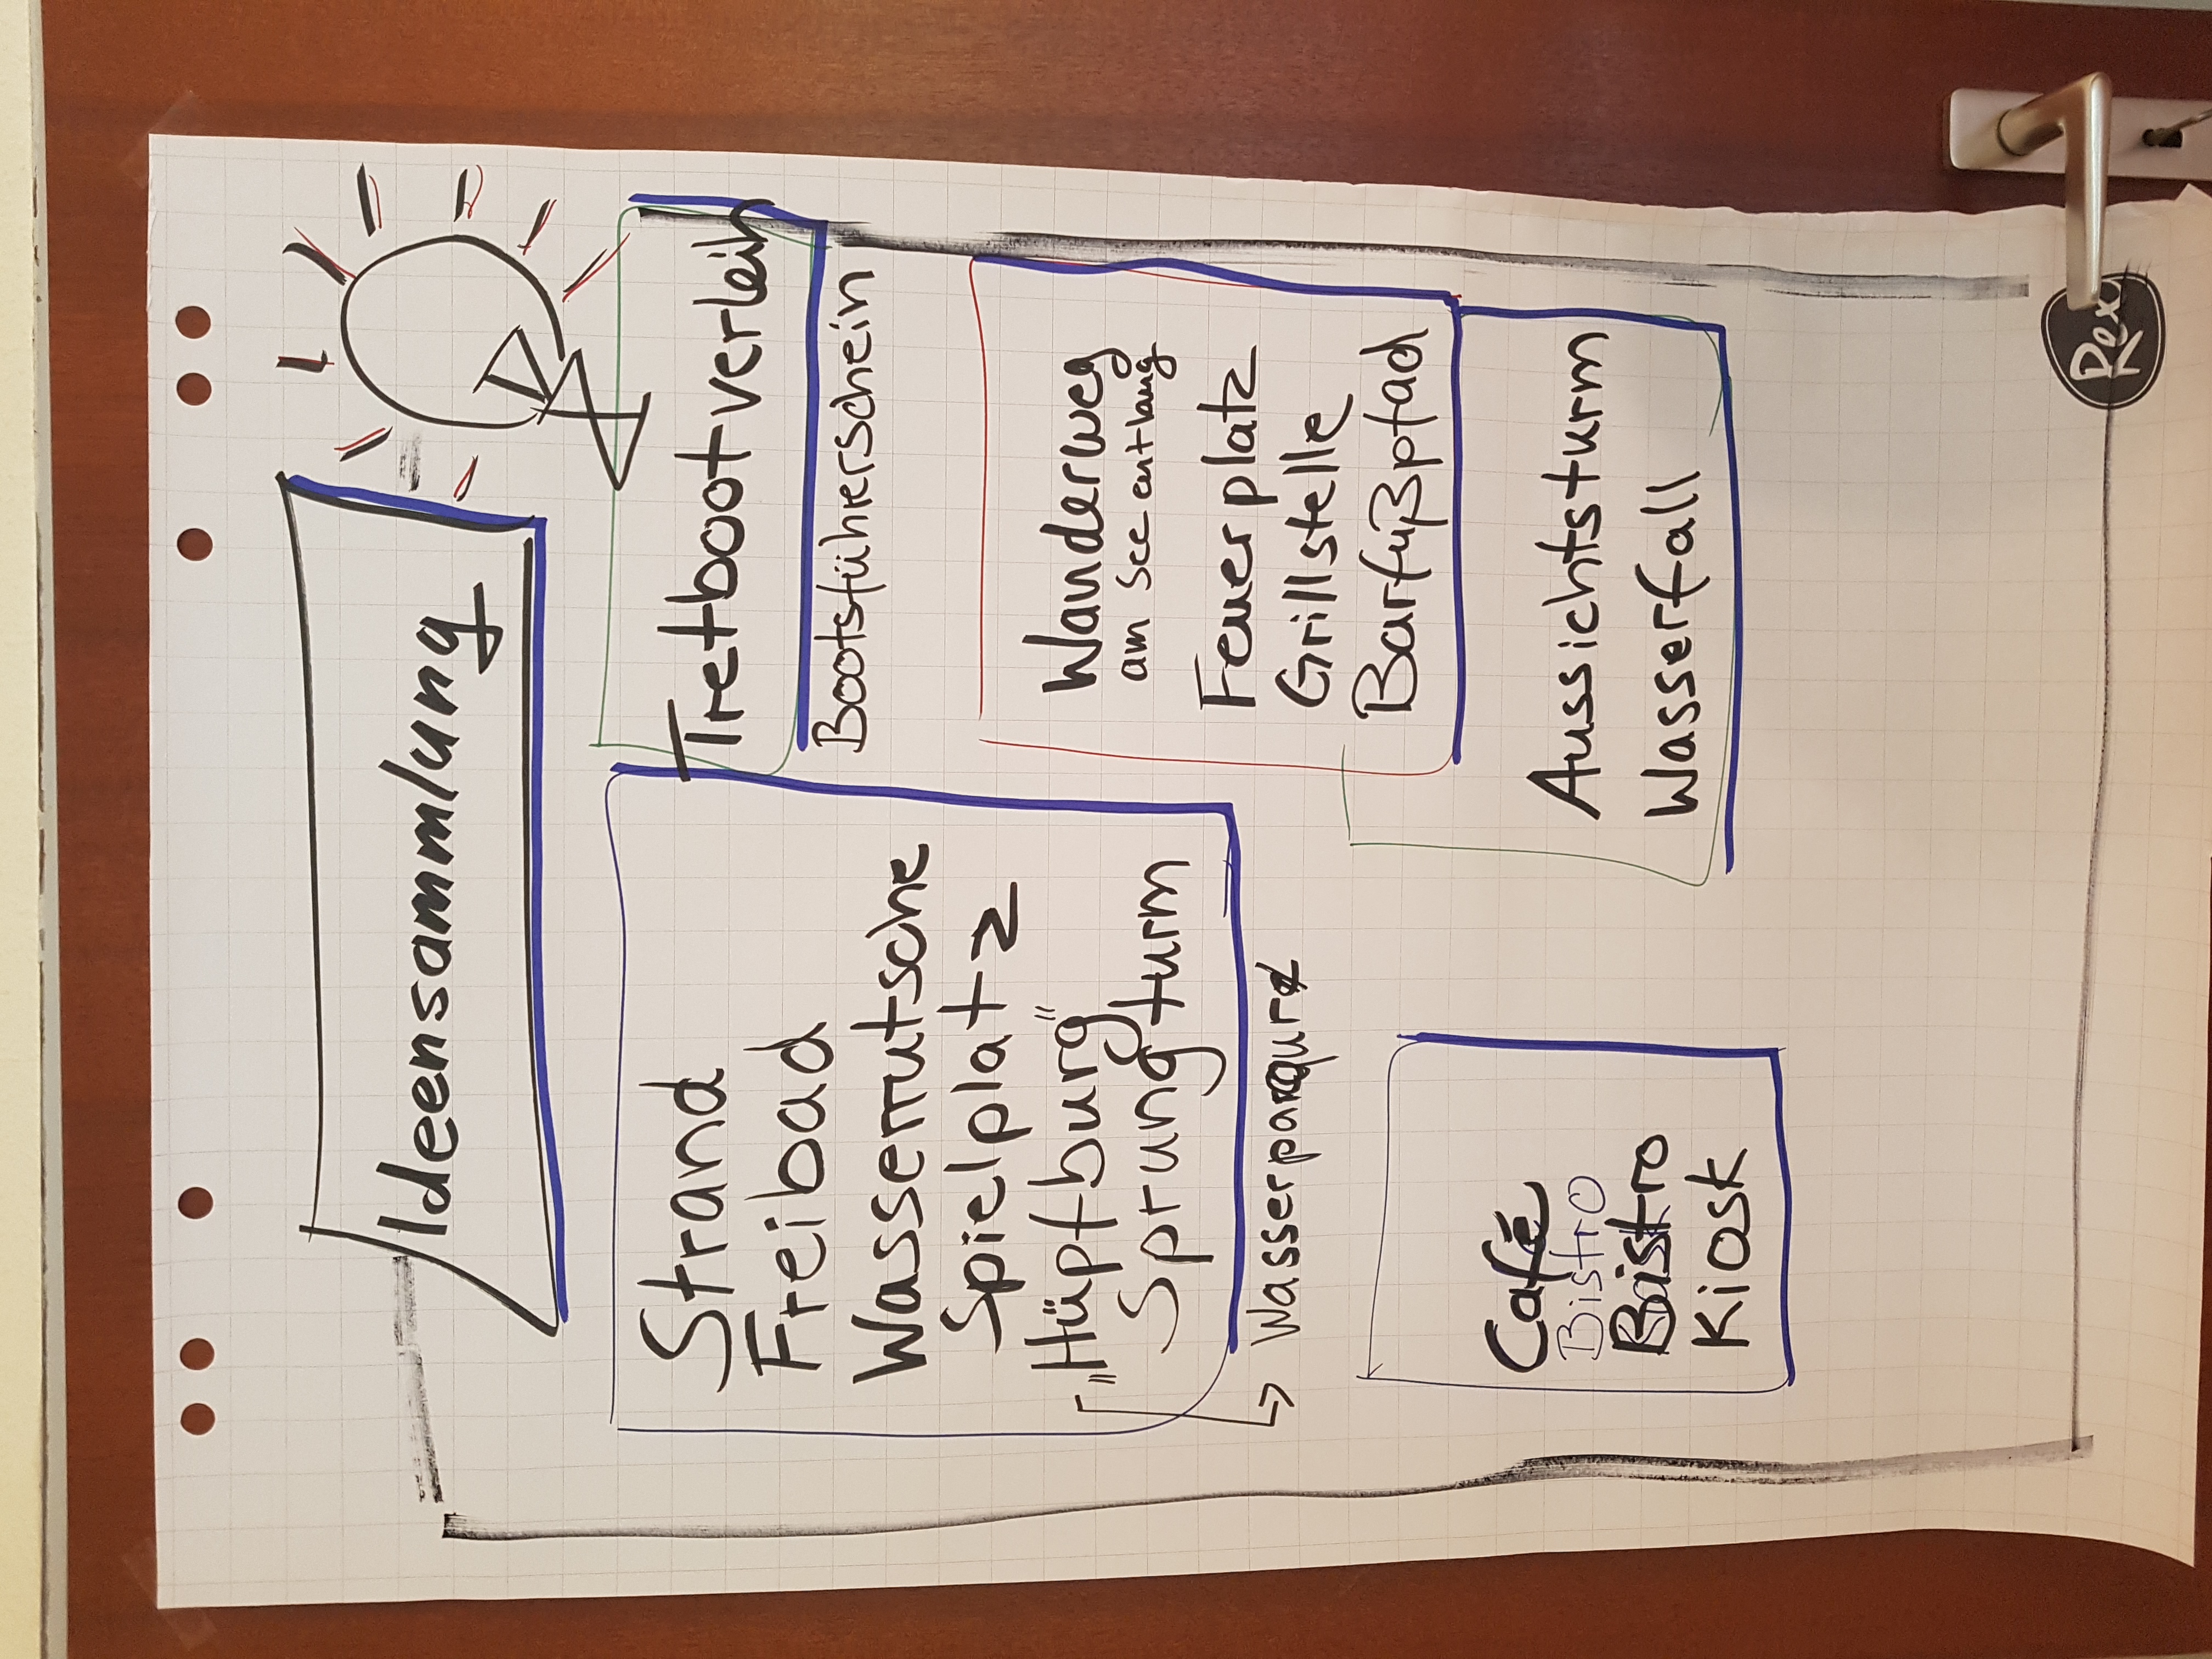 Ideensammlung
Strand
Freibad
Wasserrutsche
Spielplatz
"Hüpfburg"
Sprungturm
→ Wasserparqur
Tretbootverleih
Bootsführerschein
Wanderweg
am See entlang
Feuerplatz
Grillstelle
Barfußpfad
Aussichtsturm
Wasserfall
Café
Bistro
Bistro
Kiosk
Rex